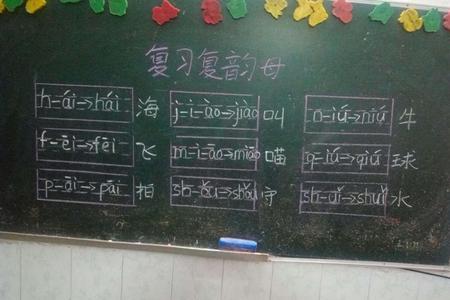 复习复韵母
h-ái→hái 海 j-i-ào→jiào 叫 n-iú→niú 牛
f-ēi→fēi 飞 m-i-āo→miāo 喵 q-iú→qiú 球
p-āi→pāi 拍 sh-ǒu→shǒu 守 sh-uǐ→shuǐ 水